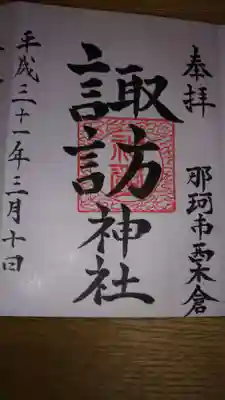 奉拝
那珂市西木倉
諏訪神社
平成三十一年三月十日